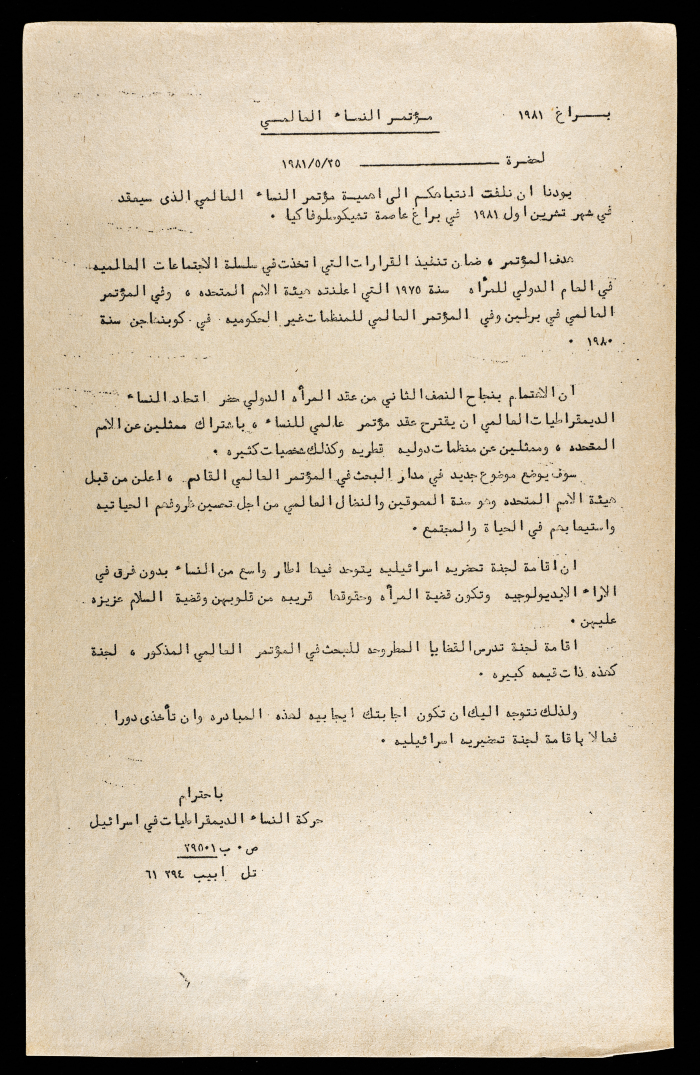 بــــراغ ١٩٨١ مؤتمر النساء العالمـــي
لحضرة ١٩٨١/٥/٢٥
بودنا ان نلفت انتباهكم الى اهمية مؤتمر النساء العالمي الذى سيعقد
في شهر تشرين اول ١٩٨١ في براغ عاصمة تشيكوسلوفاكيا .
هدف المؤتمر ، ضمان تنفيذ القرارات التي اتخذت في سلسلة الاجتماعات العالميه
في العام الدولي للمرأه سنة ١٩٧٥ التي اعلنته هيئة الامم المتحده ، وفي المؤتمر
العالمي في برلين وفي المؤتمر العالمي للمنظمات غير الحكوميه في كوبنهاجن سنة
١٩٨٠ .
ان الاهتمام بنجاح النصف الثاني من عقد المرأه الدولي حفز اتحاد النساء
الديمقراطيات العالمي ان يقترح عقد مؤتمر عالمي للنساء ، باشتراك ممثلين عن الامم
المتحده ، وممثلين عن منظمات دوليه قطريه وكذلك شخصيات كثيره .
سوف يوضع موضوع جديد في مدار البحث في المؤتمر العالمي القادم ، اعلن من قبل
هيئة الامم المتحده وهو سنة المعوقين والنضال العالمي من اجل تحسين ظروفهم الحياتيه
واستيعابهم في الحياة والمجتمع .
ان اقامة لجنة تحضريه اسرائيليه يتوحد فيها اطار واسع من النساء بدون فرق في
الاراء الايديولوجيه وتكون قضية المرأه وحقوقها قريبه من قلوبهن وقضية السلام عزيزه
عليهن .
اقامة لجنة تدرس القضايا المطروحه للبحث في المؤتمر العالمي المذكور ، لجنة
كهذه ذات قيمه كبيره .
ولذلك نتوجه اليك ان تكون اجابتك ايجابيه لهذه المبادره وان تأخذى دورا
فعالا باقامة لجنة تحضيريه اسرائيليه .
باحترام
حركة النساء الديمقراطيات في اسرائيل
ص . ب ٢٩٥٠١
تل ابيب ٦١ ٢٩٤